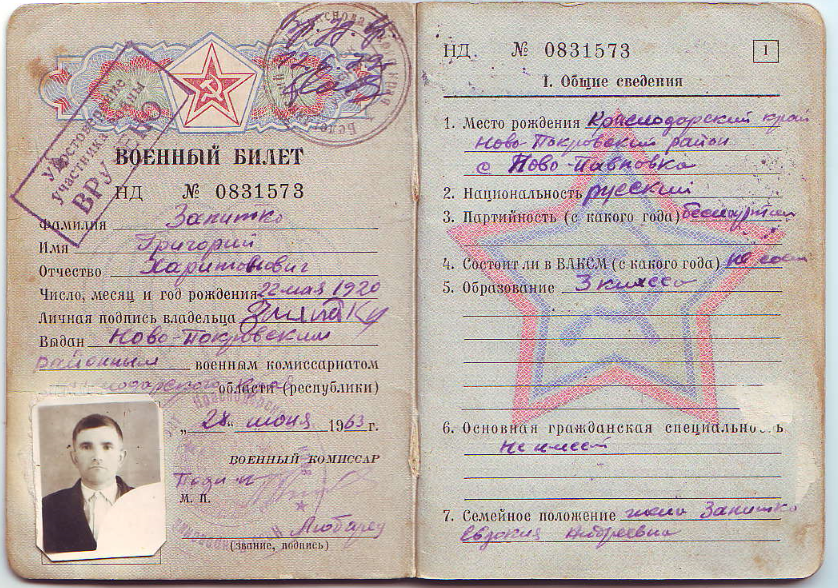 Удостоверение
участника войны
ВРУЧЕНО
ВОЕННЫЙ БИЛЕТ
НД № 0831573
Фамилия Запитко
Имя Григорий
Отчество Харитонович
Число, месяц и год рождения 22 мая 1920
Личная подпись владельца
Выдан Ново-Покровским
районным военным комиссариатом
Краснодарского края области (республики)
„28“ июня 1963 г.
ВОЕННЫЙ КОМИССАР
М. П.
(звание, подпись)
НД. № 0831573
1
I. Общие сведения
1. Место рождения Краснодарский край
Ново-Покровский район
с Ново-Павловка
2. Национальность русский
3. Партийность (с какого года) беспартийн
4. Состоит ли в ВЛКСМ (с какого года) не сост
5. Образование 3 класса
6. Основная гражданская специальность
Не имеет
7. Семейное положение жена Запитко
Евдокия Андреевна